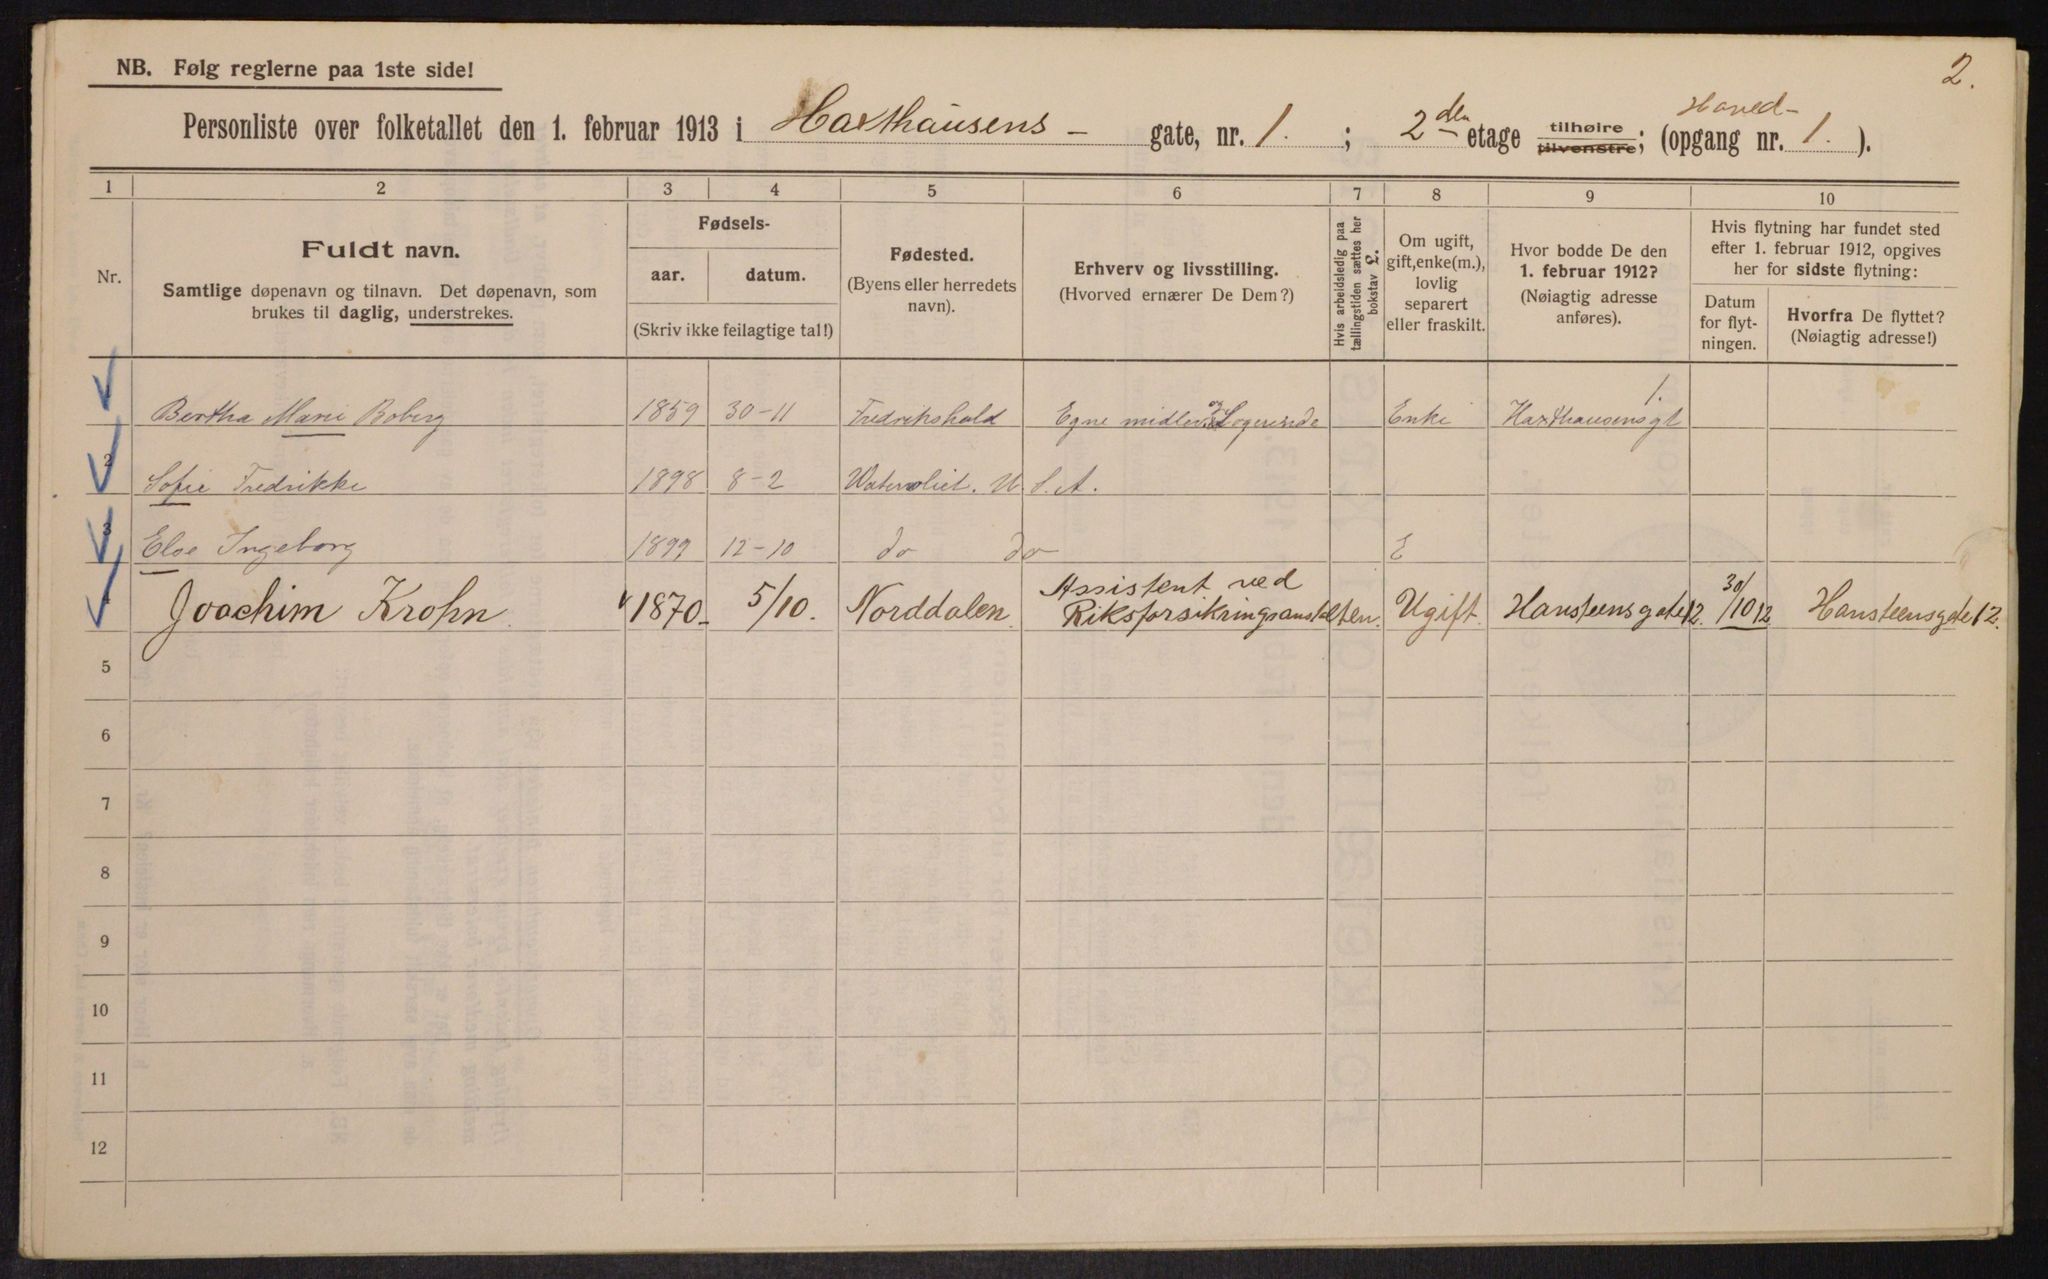 2.
NB. Følg reglerne paa 1ste side!
Personliste over folketallet den 1. februar 1913 i Haxthausens - gate, nr. 1. ; 2den etage tilhøire tilvenstre; (opgang nr. 1. ).
Hoved-
1 2 3 4 5 6 7 8 9 10
Nr.
Fuldt navn.
Samtlige døpenavn og tilnavn. Det døpenavn, som
brukes til daglig, understrekes.
Fødsels-
aar. datum.
(Skriv ikke feilagtige tal!)
Fødested.
(Byens eller herredets
navn).
Erhverv og livsstilling.
(Hvorved ernærer De Dem?)
Hvis arbeidsledig paa
tællingstiden sættes her
bokstav L.
Om ugift,
gift, enke(m.),
lovlig
separert
eller fraskilt.
Hvor bodde De den
1. februar 1912?
(Nøiagtig adresse
anføres).
Hvis flytning har fundet sted
efter 1. februar 1912, opgives
her for sidste flytning:
Datum
for flyt-
ningen.
Hvorfra De flyttet?
(Nøiagtig adresse!)
1 Bertha Marie Boberg 1859 30-11 Fredrikshald Egne midler og Logerende Enke Haxthausensgt 1.
2 Sofie Fredrikke 1898 8-2 Watervliet. U. S. A.
3 Eloe Ingeborg 1899 12-10 do do E
4 Joachim Krohn. 1870 5/10. Norddalen. Assistent ved Riksforsikringsanstalten. Ugift. Hansteensgate 12. 30/10 12 Hansteensgate 12.
5
6
7
8
9
10
11
12